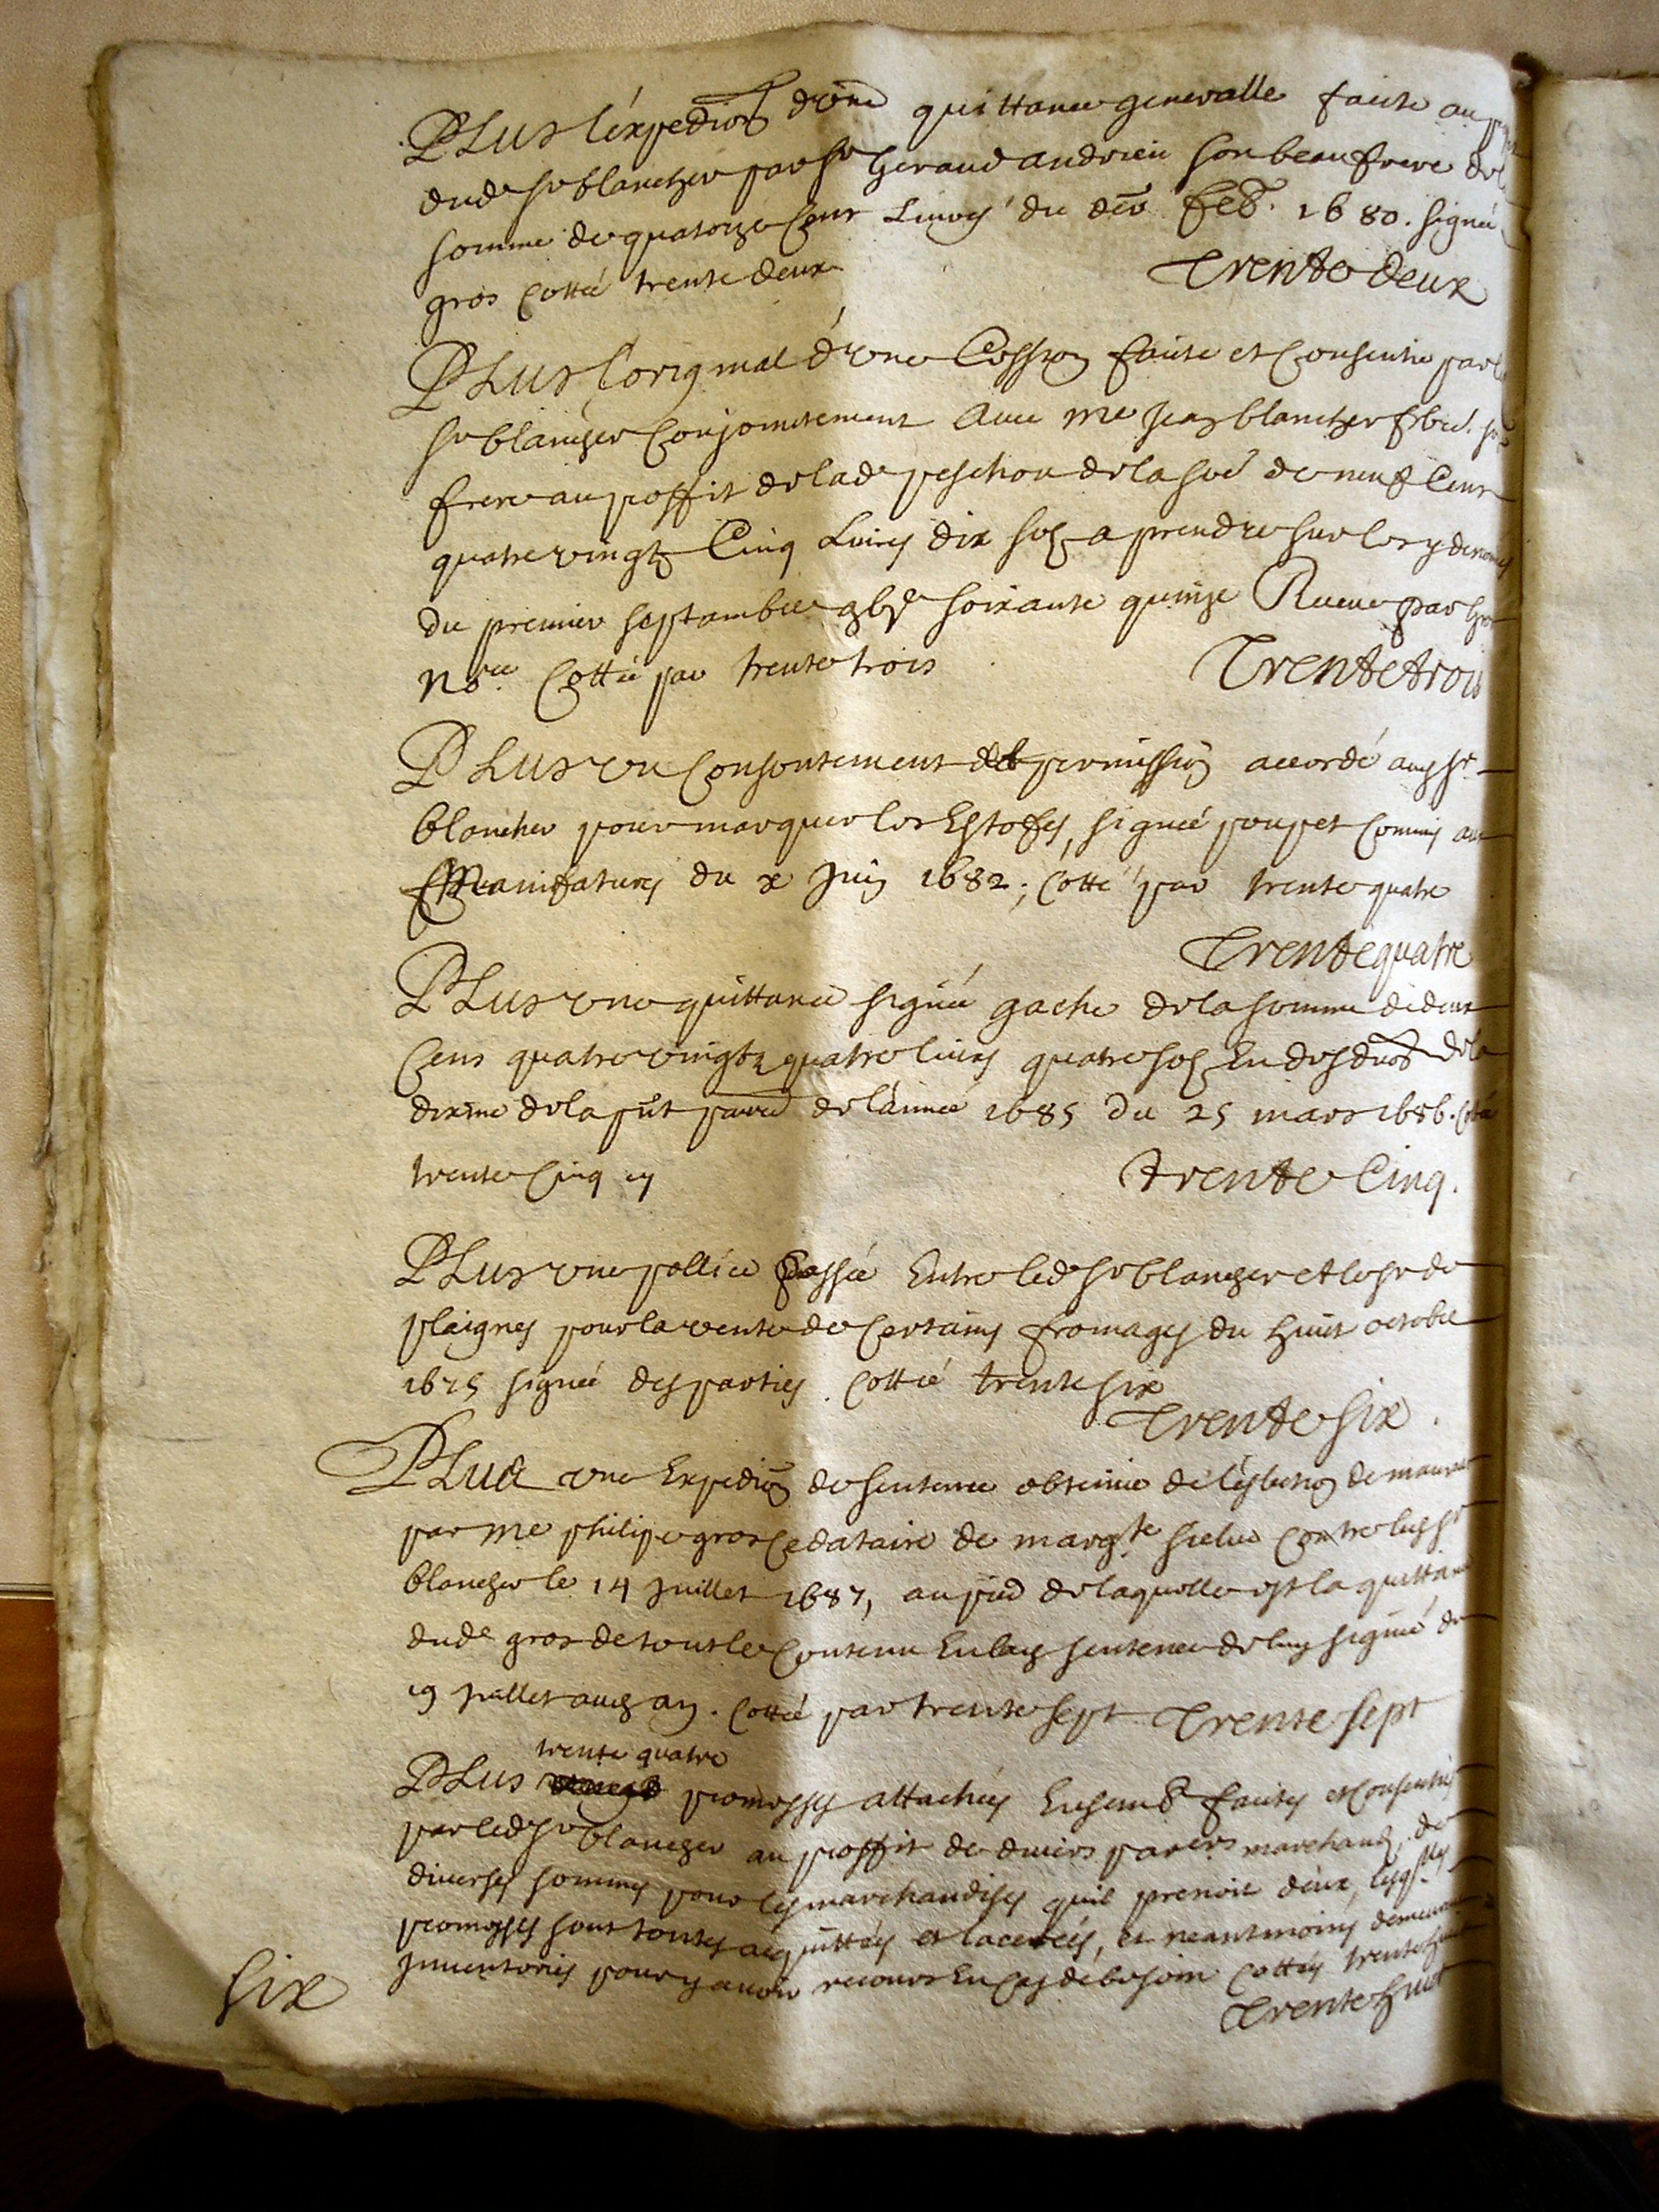 PLus l'expedion d'une quittance generalle faicte au
dud sr blancher par sr Geraud andrieu son beau frere de
somme de quatorze cent Livres du der feb. 1680. signé
gros Cotté trente deux
Trente deux
PLus l'original d'une Cession faite et Consentie par
sr blancher Conjointement avec me Jean blancher
frere au proffit de lad peschou de la soe de neuf Cent
quatre vingt Cinq Livres dix solz a prendre sur les y denomes
du premier septambre gbjc soixante quinze Receue par
nore Cottée par trente trois
Trente trois
PLus un Consentement de permission accordé aud sr
blancher pour marquer les Estofes, signée poupet Commis au
Manifatures du x Juin 1682; Cotté par trente quatre
Trente quatre
PLus une quittance signée gache de la somme de deux
Cens quatre vingtz quatre livres quatre solz En desduon de la
dixme de la pnt parr de l'année 1685 du 25 mars 1686. Cotté
trente Cinq cy
trente Cinq.
PLus une pollice passée Entre led sr blancher et le sr de
plaignes pour la vente de Certains fromages du huit octobre
1675 signée des parties. Cottée trente six
Trente six.
PLus une Expedion de sentence obtenue de l'eslection de maurs
par me philipe gros Cedataire de margte Contre led sr
blancher le 14 Juillet 1687, au pied de laquelle est la quittance
dud gros de tout le Contenu En lad sentence de luy signée du
19 Juillet aud an. Cottée par trente sept Trente sept
trente quatre
PLus promesses attachées Ensemb faites et Consenties
par led sr blancher au proffit de divers parers marchandz, de
diverses sommes pour les marchandises quil prenoit d'eux, lesqlles
promesses sont toutes acquittées et lacerées, et neantmoins demeurent
Inventories pour y avoir recours En Cas de besoin Cottés trente huit
Trente huit
six